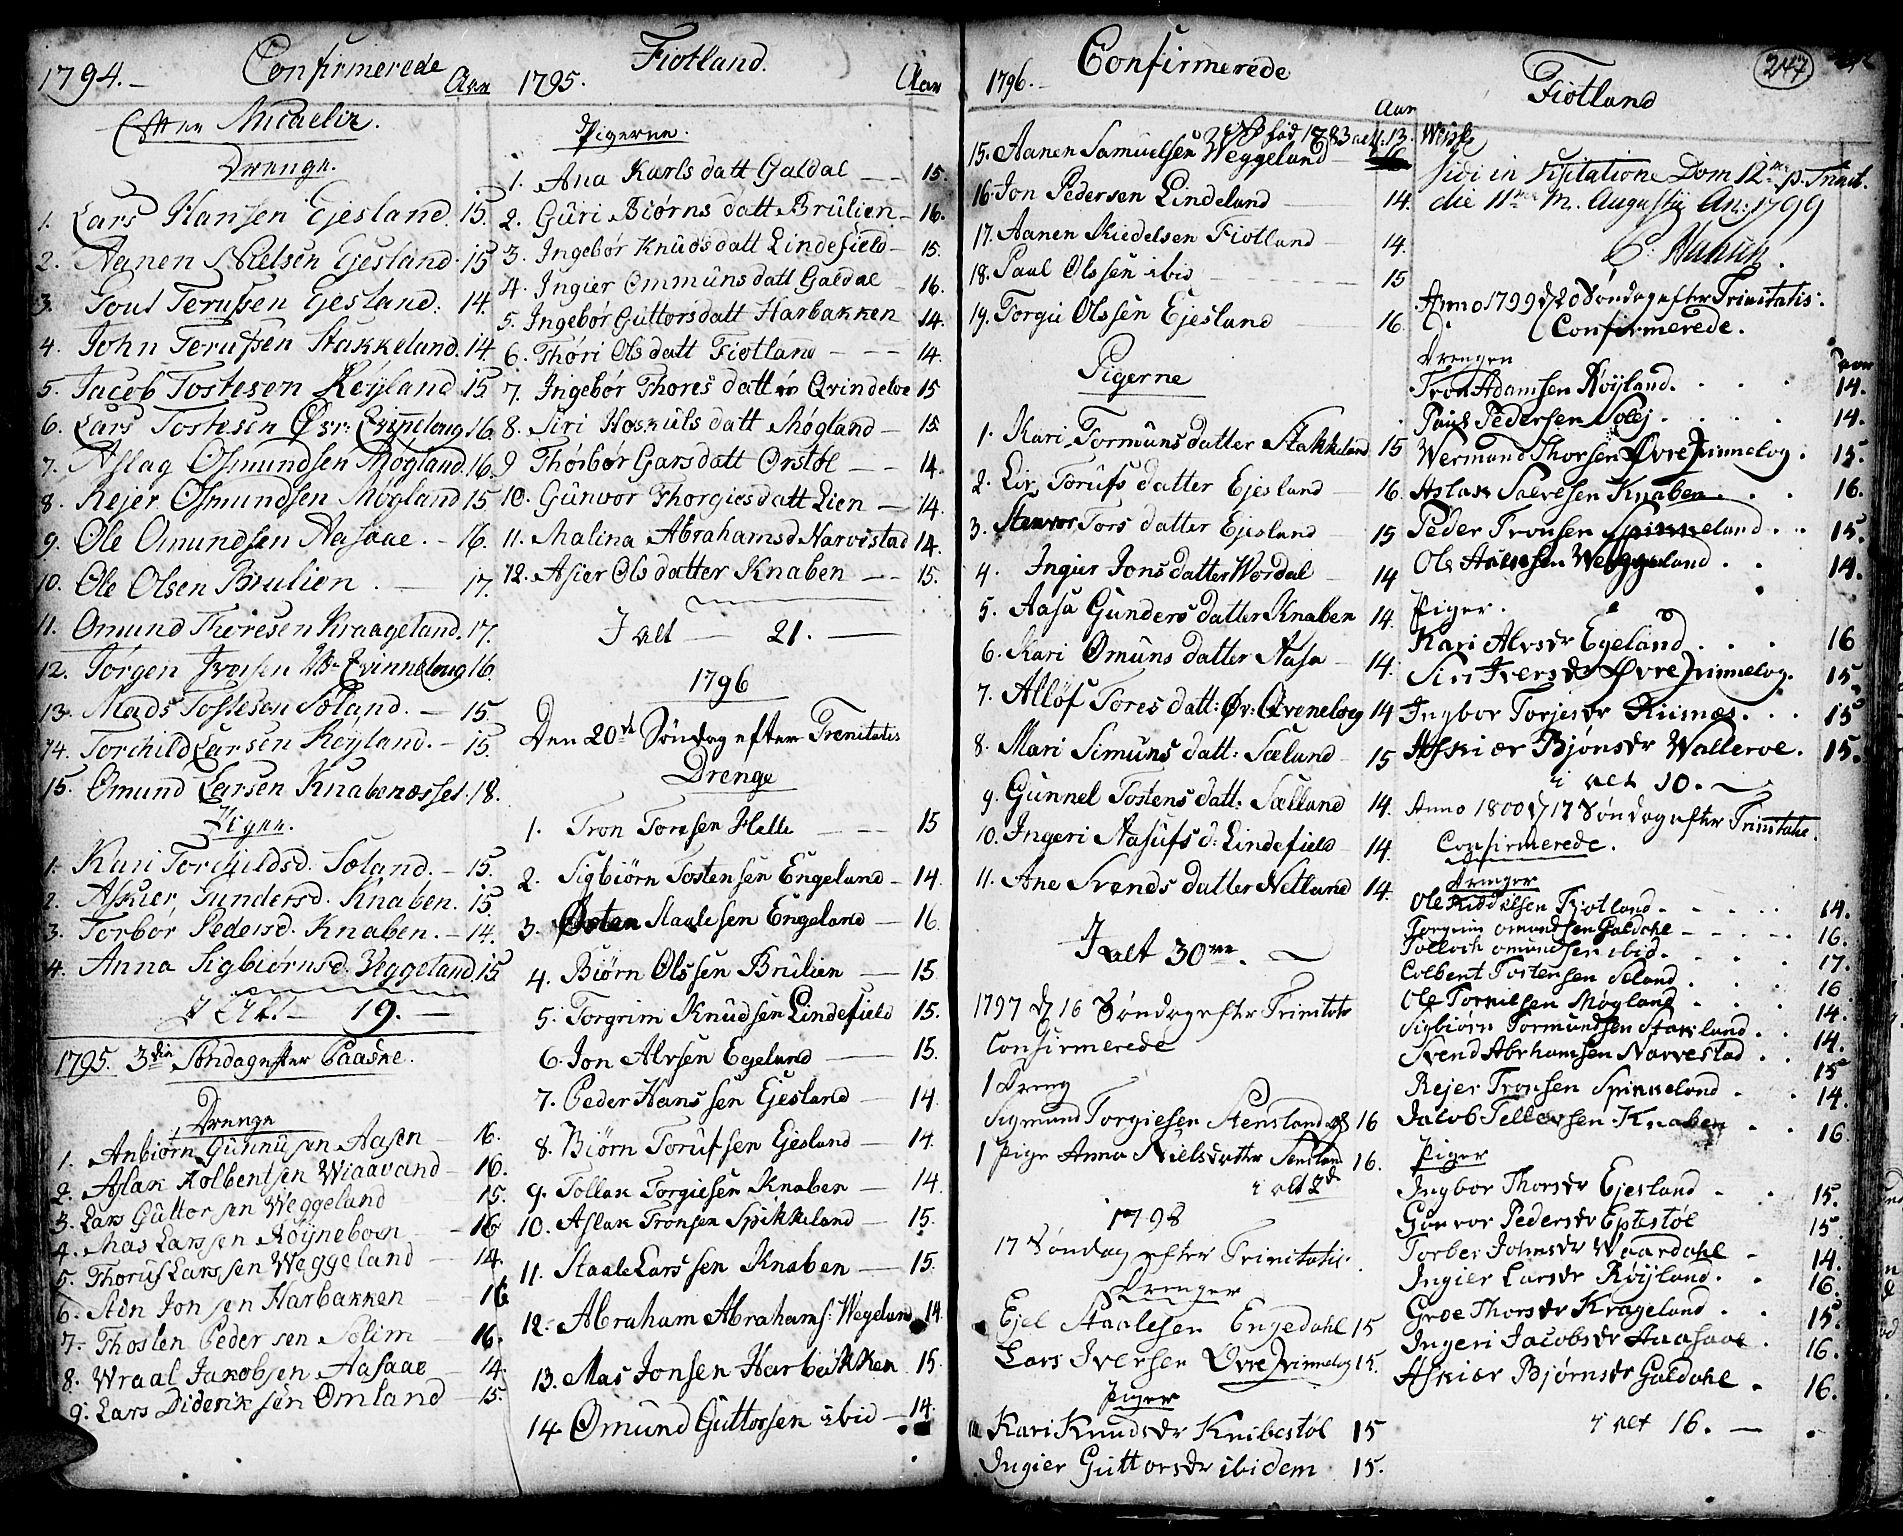 1794.- Confirmerede
Aar
Efter Micaelis.
Drenge.
1. Lars Hansen Ejesland. 15.
2. Aanen Nielsen Ejesland. 15
3. Toul Terussen Ejesland. 14.
4. John Terussen Stakkeland. 14
5. Jacob Tostesen Røyland 15.
6. Lars Tostesen Øvr: Qvinnelaug 16.
7. Aslag Osmundsen Møgland. 16.
8. Rejer Osmundsen Møgland 15
9. Ole Omundsen Aasaae. - 16.
10. Ole Olsen Brulien. - 17.
11. Omund Thoresen Kraageland. 17.
12. Jørgen Iversen Qvinnelaug 16.
13. Mads Tostesen Soland. - 15.
14. Torchild Larsen Røyland. - 15.
15. Omund Larsen Knabenæsset. 18.
Piger.
1. Kari Torchildsd. Soland. - 15.
2. Askier Gundersd. Knaben. 15
3. Torbor Pedersd. Knaben. - 14.
4. Anna Sigbiørnsd. Veggeland. 15
I Alt - 19. -
1795. 3die Søndag efter Paaske.
Drenge
1. Anbiørn Gunnusen Aasen - 16.
2. Aslak Kolbentsen Wiaavand - 16.
3. Lars Guttorsen Weggeland 15.
4. Mas Larssen Røyneboen - 16
5. Thorus Larssen Weggeland - 14.
6. Aen Jonsen Harbakken - 16
7. Thosten Pedersen Solim - 16.
8. Wraal Jakobsen Aasaae - 14
9. Lars Dideriksen Omland - 15.
1795. Fiotland.
Aar
Pigerne.
1. Ana Karlsdatt Galdal - 15.
2. Guri Biørnsdatt Brulien - 16.
3. Ingebør Knudsdatt Lindefield - 15.
4. Ingier Ommunsdatt Galdal - 16.
5. Ingebør Guttorsdatt Harbakken 14.
6. Thøri Olsdatt Fiotland - - - 14.
7. Ingebør Thoresdatt Qvindeloe 15
8. Siri Hoskulsdatt Møgland - 15
9 Thorbør Garsdatt Ørstøl - - 14.
10. Gunvor Thorgiesdatt Lien - 14.
11. Malina Abrahamsd Narvistad 14.
12. Asier Olsdatter Knaben - - 15.
I alt - 21. -
1796
Den 20de Søndag efter Trenitatis
Drenge
1. Tron Toresen Helle - - 15
2. Sigbiörn Tostensen Engeland - 14.
3. Østen Staalesen Engeland - 16.
4. Biörn Olssen Brulien - 15
5. Torgrim Knudsen Lindefield 15.
6. Jon Alvsen Egeland - 15.
7. Peder Hanssen Ejesland - 14.
8. Biörn Torufsen Ejesland - 14.
9. Tollak Torgiesen Knaben - 14
10. Aslak Tronsen Spikkeland - 15.
11. Staale Larssen Knaben - 15.
12. Abraham Abrahams: Wegeland 14
13. Mas Jonsen Harbakken 15.
14 Omund Guttorsen ibid - 14.
1796.- Confirmerede
Aar
15. Aanen Samuelsen Weggeland
16. Jon Pedersen Lindeland - 14.
17. Aanen Kiedelsen Fiotland - 14.
18. Paul Olssen ibid - 15
19. Torgie Olssen Ejesland - 16.
Pigerne
1. Kari Tormunsdatter Stakkeland 15
2. Liv Torufsdatter Ejesland - 16.
3. Stenvor Torsdatter Ejesland - 15
4. Ingier Jonsdatter Wordal - 14
5. Aasa Gundersdatter Knaben 14.
6. Kari Omunsdatter Aasa - 14.
7. Alløf Toresdatt: Øv: Qveneloeg 14
8. Mari Simunsdatt: Sæland - 15
9. Gunnel Tostensdatt: Sælland 14.
10. Ingeri Aasufsd: Lindefield - 14.
11. Ane Svendsdatter Netland 14.
I alt 30ve. -
1797 d 16 Søndag efter Trinitatis
Confirmerede
1 Dreng
Sigmund Torgiesen Stensland og 16
1 Pige Anna Nielsdatter Stensland 16.
i alt 2de
1798
17 Søndag efter Trinitatis.
Drenger
Ejel Staalesen Engedahl 15
Lars Iversen Øvre Qvinnelog 15.
Piger
Kari Knudsdr Knibestøl 15
Ingier Guttorsdr ibidem 15.
247
Fiotland
Vidi in Visitatione Dom 12ma p. Trinit.
die 11ma M. Augusti An: 1799
Anno 1799 d 20 Søndag efter Trinitatis.
Confirmerede.
Drenger
Aar
Tron Adamsen Røyland. 14.
Paul Pedersen Solej. 14.
Wermund Thorsen Øvre Qvinnelog. 15.
Aslak Salvesen Knaben. 16.
Peder Tronsen Spikkeland. 15.
Ole Weggeland. 14.
Piger.
Kari Alvsdr Egeland. 16
Siri Iversdr Øvre Qvinnelog. 15.
Ingbor Torjesdr Risnæs. 15
Askiær Bjønsdr Walleroe. 15.
i alt 10. -
Anno 1800 d 17 Søndag efter Trinitatis.
Confirmerede.
Drenger
Ole Kiddelsen Fjotland. 14.
Torgrim Omundsen Galdahl 16.
Tolleik Omundsen ibid. 17.
Colbent Tostensen Soland. 16
Ole Tornilsen Møgland. 14.
Sigbiørn Tormundsen Stakland. 14.
Svend Abrhamsen Narvestad. 15
Rejer Tronsen Spikkeland. 14.
Jacob Tellevsen Knaben 16
Piger
Ingbor Thorsdr Ejesland. 15.
Gunvor Pedersdr Eptestøl 15
Torber Johnsdr Waardahl 14.
Ingier Larsdr Røyland. 16.
Groe Thorsdr Krageland. 15.
Ingeri Jacobsdr Aasaae. 16.
Askiær Bjørnsdr Galdahl. 16.
i alt 16. -